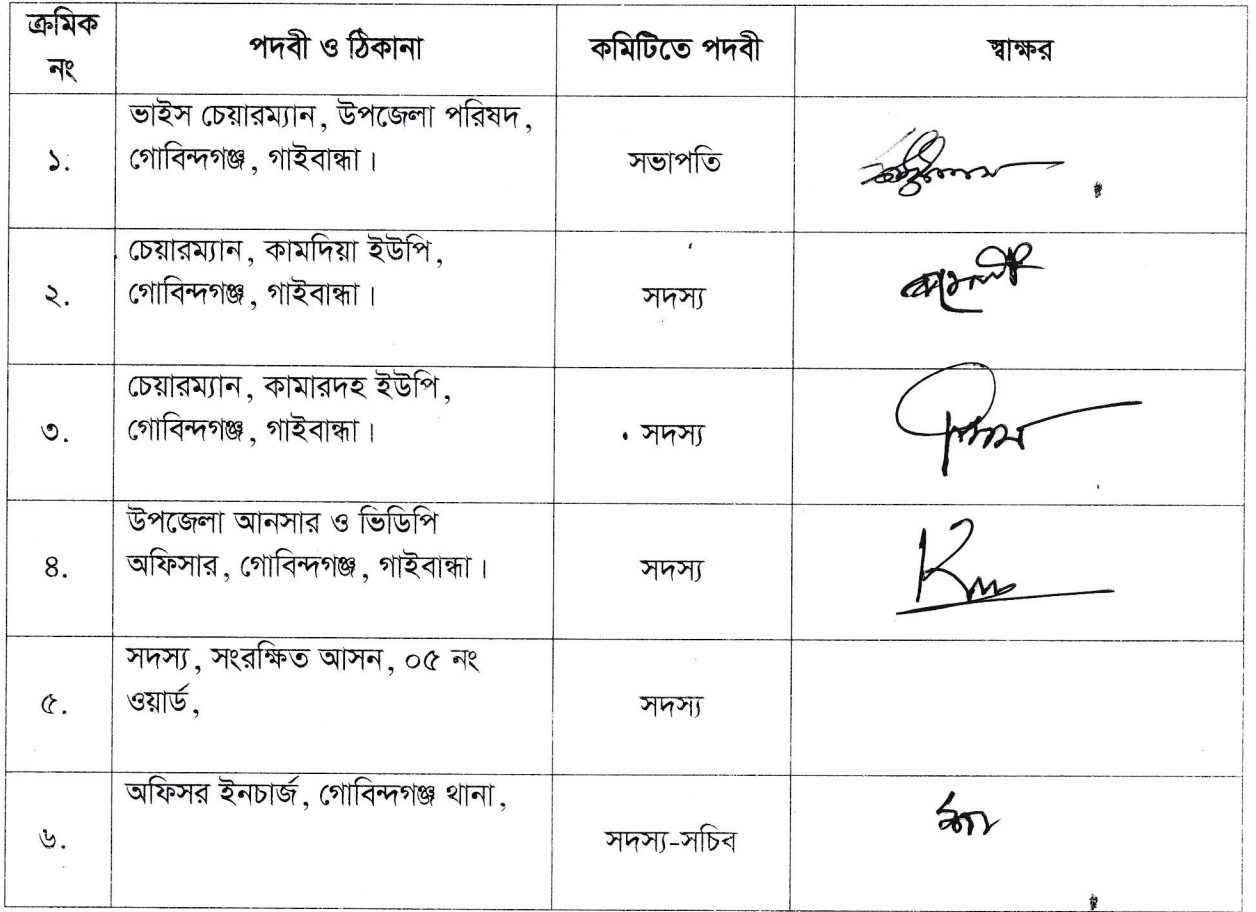 ক্রমিক
নং
পদবী ও ঠিকানা
কমিটিতে পদবী
স্বাক্ষর
১.
ভাইস চেয়ারম্যান, উপজেলা পরিষদ,
গোবিন্দগঞ্জ, গাইবান্ধা।
সভাপতি
২.
চেয়ারম্যান, কামদিয়া ইউপি,
গোবিন্দগঞ্জ, গাইবান্ধা।
সদস্য
৩.
চেয়ারম্যান, কামারদহ ইউপি,
গোবিন্দগঞ্জ, গাইবান্ধা।
সদস্য
৪.
উপজেলা আনসার ও ভিডিপি
অফিসার, গোবিন্দগঞ্জ, গাইবান্ধা।
সদস্য
৫.
সদস্য, সংরক্ষিত আসন, ০৫ নং
ওয়ার্ড,
সদস্য
৬.
অফিসর ইনচার্জ, গোবিন্দগঞ্জ থানা,
সদস্য-সচিব